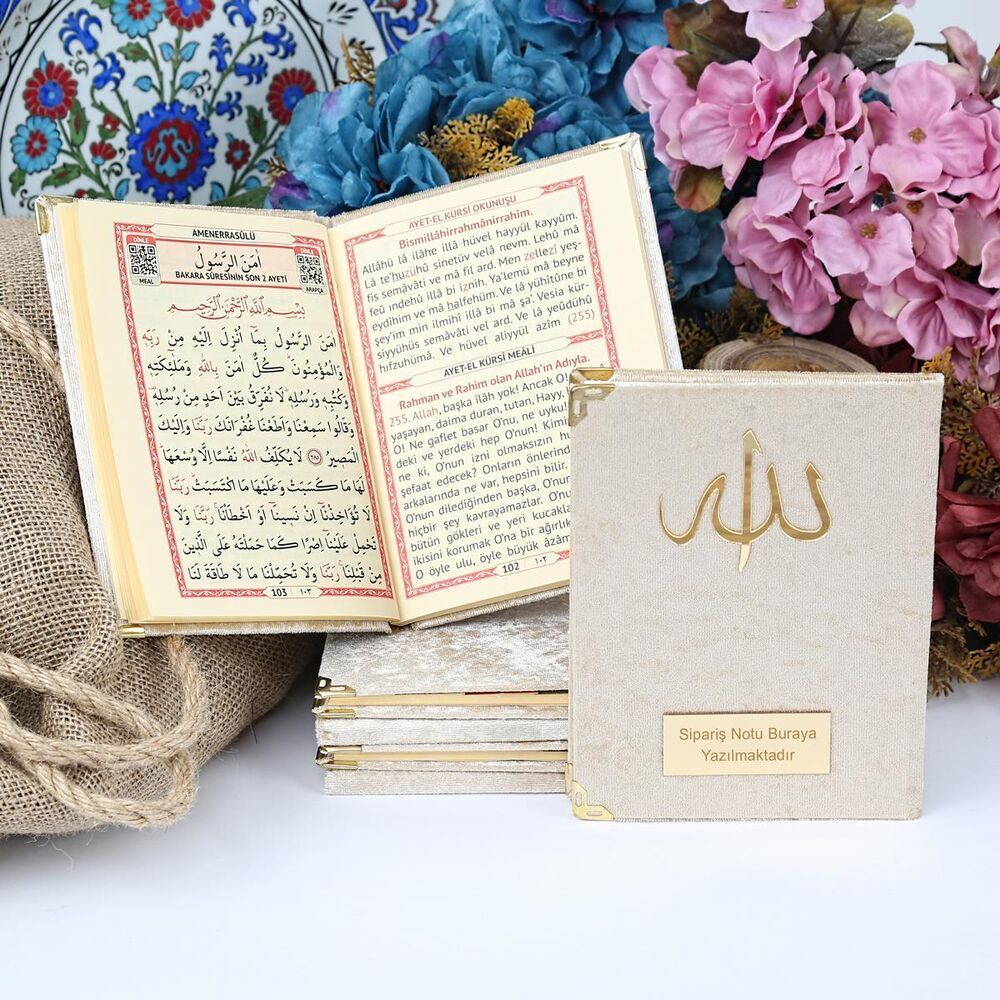 AMENERRASÛLÜ
DİNLE
MEAL
اٰمَنَ الرَّسُولُ
BAKARA SÛRESİNİN SON 2 AYETİ
DİNLE
ARAPÇA
بِسْمِ اللّٰهِ الرَّحْمٰنِ الرَّحٖيمِ
اٰمَنَ الرَّسُولُ بِمَٓا اُنْزِلَ اِلَيْهِ مِنْ رَبِّهٖ
وَالْمُؤْمِنُونَ كُلٌّ اٰمَنَ بِاللّٰهِ وَمَلٰٓئِكَتِهٖ
وَكُتُبِهٖ وَرُسُلِهٖ لَا نُفَرِّقُ بَيْنَ اَحَدٍ مِنْ رُسُلِهٖ
وَقَالُوا سَمِعْنَا وَاَطَعْنَا غُفْرَانَكَ رَبَّنَا وَاِلَيْكَ
الْمَصٖيرُ ﴿٢٨٥﴾ لَا يُكَلِّفُ اللّٰهُ نَفْسًا اِلَّا وُسْعَهَا
لَهَا مَا كَسَبَتْ وَعَلَيْهَا مَا اكْتَسَبَتْ رَبَّنَا
لَا تُؤَاخِذْنَٓا اِنْ نَسٖينَٓا اَوْ اَخْطَاْنَا رَبَّنَا وَلَا
تَحْمِلْ عَلَيْنَٓا اِصْرًا كَمَا حَمَلْتَهُ عَلَى الَّذٖينَ
مِنْ قَبْلِنَا رَبَّنَا وَلَا تُحَمِّلْنَا مَا لَا طَاقَةَ لَنَا
103 ١٠٣
AYET-EL KÜRSİ OKUNUŞU
Bismillâhirrahmânirrahim.
Allâhü lâ ilâhe illâ hüvel hayyül kayyûm.
Lâ te'huzühû sinetüv velâ nevm. Lehû mâ
fis semâvâti ve mâ fil ard. Men zellezi yeş-
feû ındehû illâ bi iznih. Ya'lemü mâ beyne
eydîhim ve mâ halfehüm. Ve lâ yühîtûne bi
şey'im min ilmihî illâ bi mâ şa'. Vesia kür-
siyyühüs semâvâti vel ard. Ve lâ yeûdühû
hıfzuhümâ. Ve hüvel aliyyül azîm (255)
AYET-EL KÜRSİ MEALİ
Rahman ve Rahim olan Allah'ın Adıyla.
255. Allah, başka ilâh yok! Ancak O'
yaşayan, daima duran, tutan, Hayy,
O! Ne gaflet basar O'nu, ne uyku!
deki ve yerdeki hep O'nun! Kimin
ne ki, O'nun izni olmaksızın hu
şefaat edecek? Onların önlerind
arkalarında ne var, hepsini bilir.
O'nun dilediğinden başka, O'nun
hiçbir şey kavrayamazlar. O'nu
bütün gökleri ve yeri kucakla
ikisini korumak O'na bir ağırlık
O öyle ulu, öyle büyük âzâm
102 ١٠٢
الله
Sipariş Notu Buraya
Yazılmaktadır